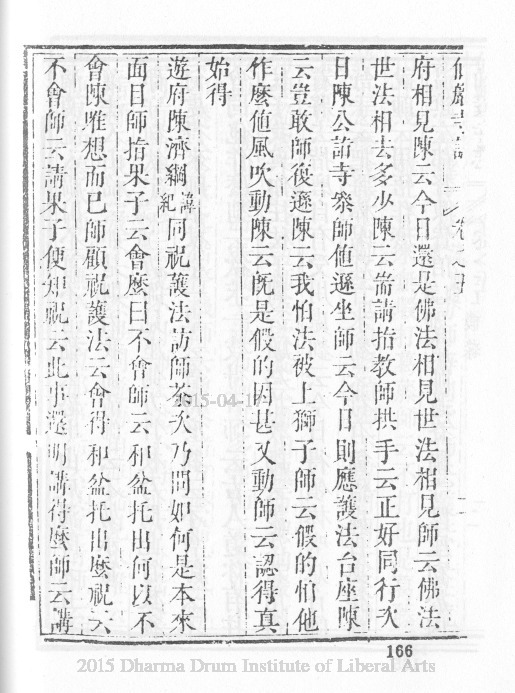 府相見陳云今日還是佛法相見世法相見師云佛法
世法相去多少陳云耑請指教師拱手云正好同行次
日陳公詣寺叅師値遜坐師云今日則應護法台座陳
云豈敢師復遜陳云我怕法被上獅子師云假的怕他
作麼値風吹動陳云既是假的因甚又動師云認得真
始得
遊府陳濟綱諱紀同祝護法訪師茶次乃問如何是本來
面目師指果子云會麼曰不會師云和盆托出何以不
會陳唯想而已師顧祝護法云會得和盆托出麼祝云
不會師云請果子便知祝云此事還明講得麼師云講
166
2015 Dharma Drum Institute of Liberal Arts